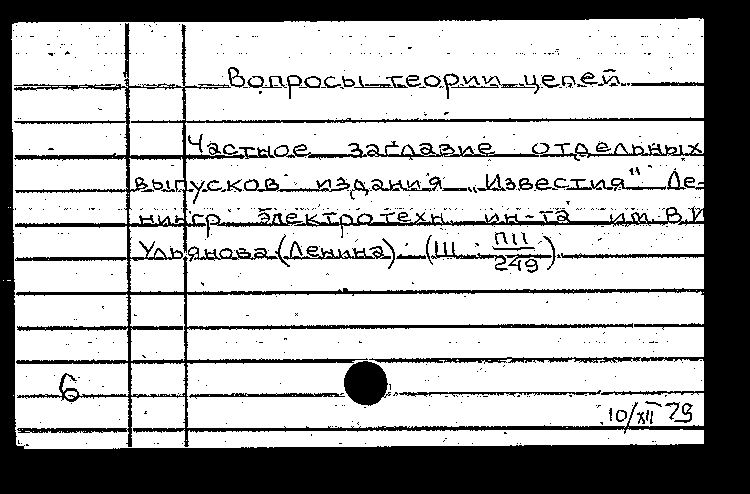 Вопросы теории цепей
Частное заглавие отдельных
выпусков издания „Известия" Ле-
нингр. электротехн. ин-та им. В.И
Ульянова (Ленина). (III : ПII/249)
6
10/XII 79